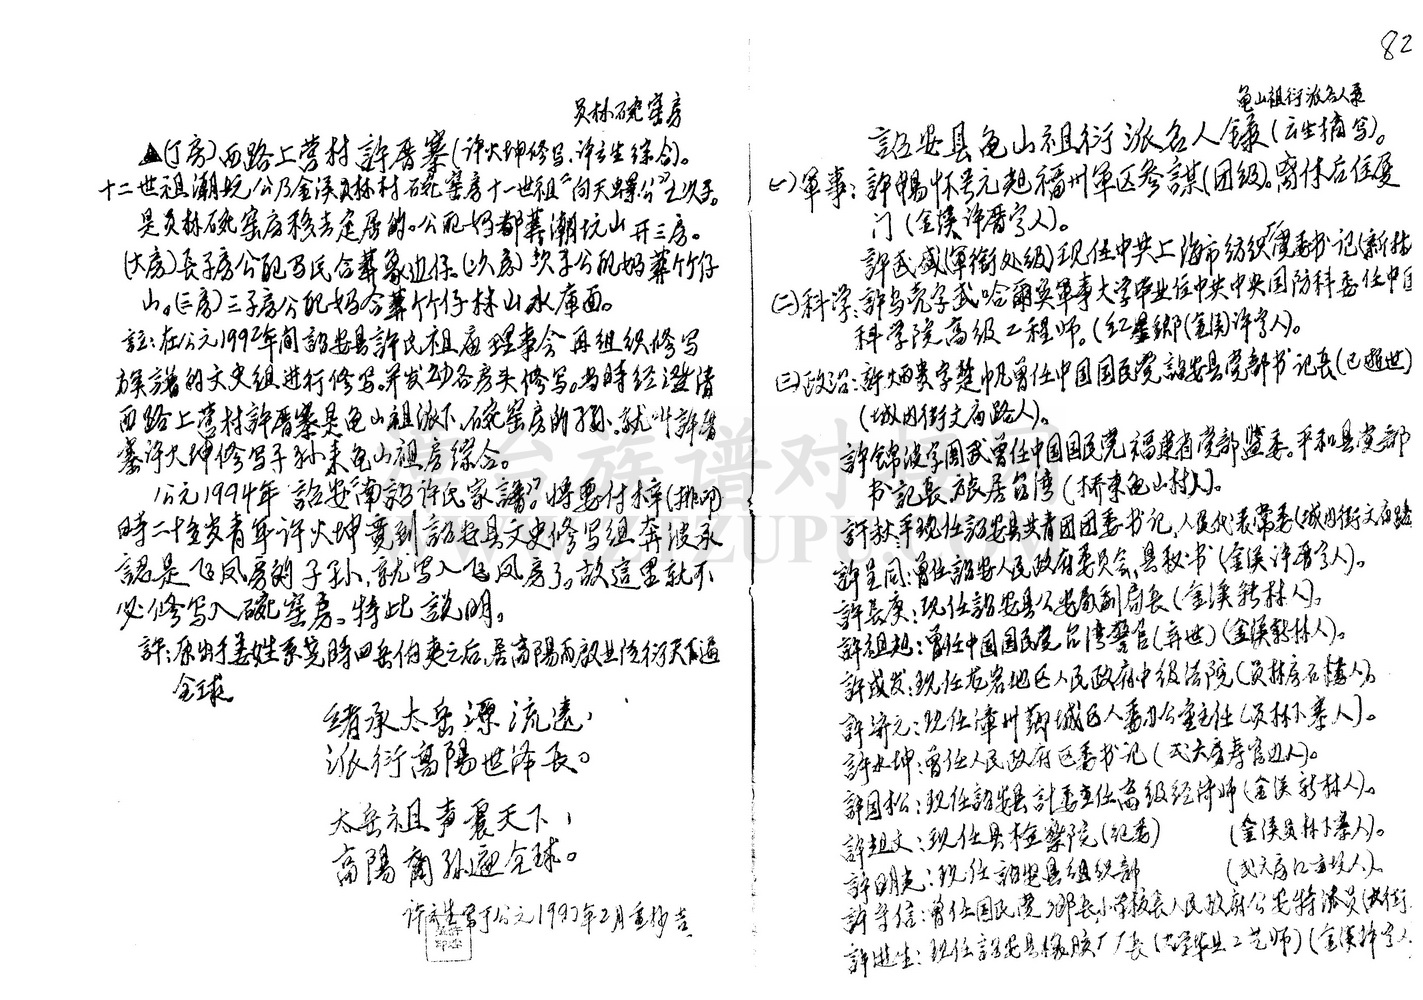 82
员林碗窑房
▲(丁房)西路上营村許厝寨(许火坤修写.许云生综合)。
十二世祖潮坑公乃金溪员林村石碗窑房十一世祖"向天螺公"之次子。
是员林碗窑房移去定居的。公配妈都葬潮坑山开三房。
(大房)長子房公配 合葬象边仔.(次房)次子公配妈葬竹仔
山。(三房)三子房公配妈合葬竹仔林山水庫面。
註:在公元1992年间詔安县許氏祖庙理事会再组织修写
族譜的文史组進行修写.并发动各房头修写。当時经澄清
西路上营村許厝寨是龟山祖派下.碗窑房的子孙.就叫許厝
寨许火坤修写子孙来龟山祖房综合。
公元1994年詔安"南詔许氏家譜"将要付梓(排印)
時二十五岁青年许火坤竟到詔安县文史修写组奔波承
認是飞凤房的子孙.就写入飞凤房了。故這里就不
必修写入碗窑房。特此說明。
許:原出于姜姓系堯時四岳伯夷之后,居高陽而啟业流衍天下遍
全球
绪承太岳源流遠,
派衍高陽世泽長。
太岳祖声震天下,
高陽裔孙遍全球。
许云生 于公元199 年2月重抄吉
龟山祖衍派名人录
詔安县龟山祖衍派名人錄(云生摘写)。
(一)軍事:許暢怀号元起福州軍区参謀(团级)。离休后住厦
门(金溪许厝寮人)。
許武威(軍銜处级)现任中共上海市纺织党委书记(新林
(二)科学:許 字武哈爾滨軍事大学毕业任中共中央国防科委任中国
科学院高级工程师。(红星鄉(金围)许寮人)。
(三)政治:許炳贵字楚中凡曾任中国国民党詔安县党部书记長(已逝世)
(城内街文庙路人)。
許錦波字周武曾任中国国民党福建省党部监委.平和县党部
书記長.旅居台湾(桥東龟山村人)。
許秋平现任詔安县共青团团委书记,人民代表常委(城内街文庙路
許呈同:曾任詔安人民政府委员会,县秘书(金溪许厝寮人)。
許長庚:现任詔安县公安局副局長(金溪新林人)。
許祖起:曾任中国国民党台湾警官(弃世)(金溪新林人)。
許成发:现任龙岩地区人民政府中级法院(员林房石楼人)。
許济元:现任漳州薌城区人委办公室主任(员林下寨人)。
許水坤:曾任人民政府区委书记(弍大房寿官边人)。
許国松:现任詔安县計委主任高级经济师(金溪新林人)。
許起文:现任县检察院(纪委) (金溪员林下寨人)。
許明光:现任詔安县组织部 (弍大房江 人)。
許守信:曾任国民党鄉長小学校長人民政府公安特派员(城内街
許逊生:现任詔安县橡胶厂厂長(大学毕业工艺师)(金溪许寮人
台族谱对接网
WWW.TZUPU.COM